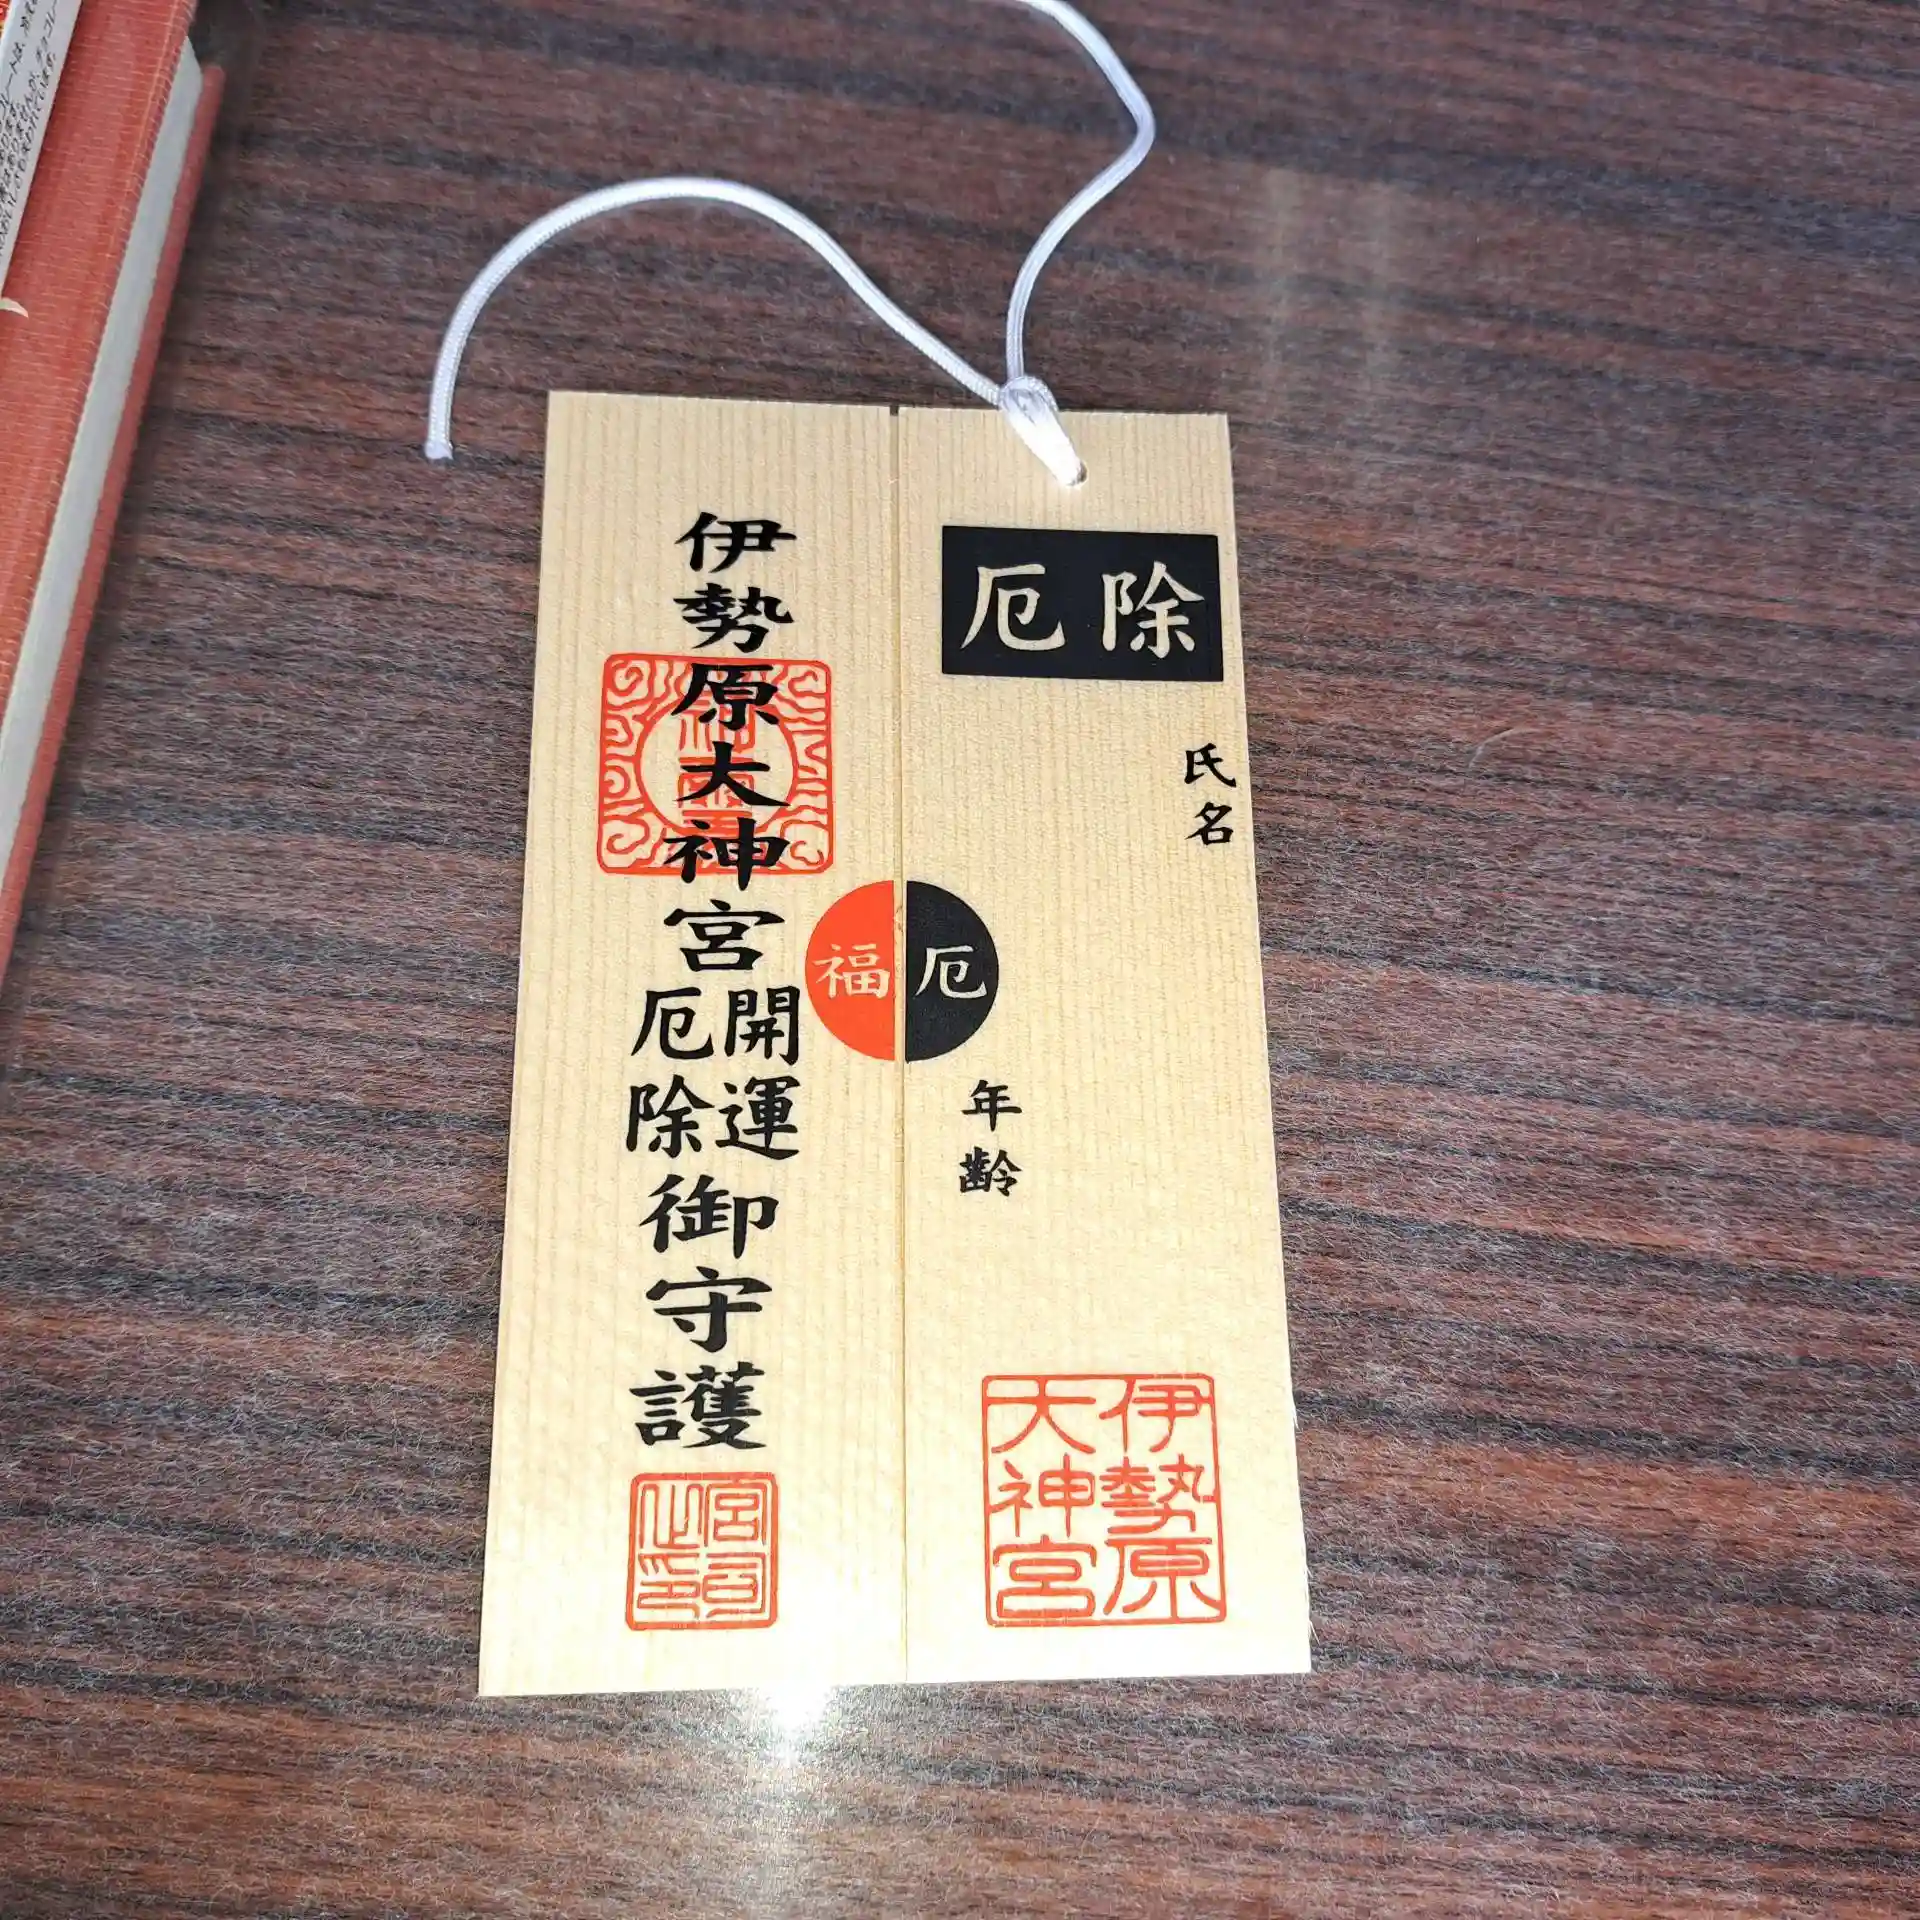 厄除
氏名
厄
年齢
伊勢原
大神宮
伊勢原大神宮
開運
厄除
御守護
福
宮司
之印